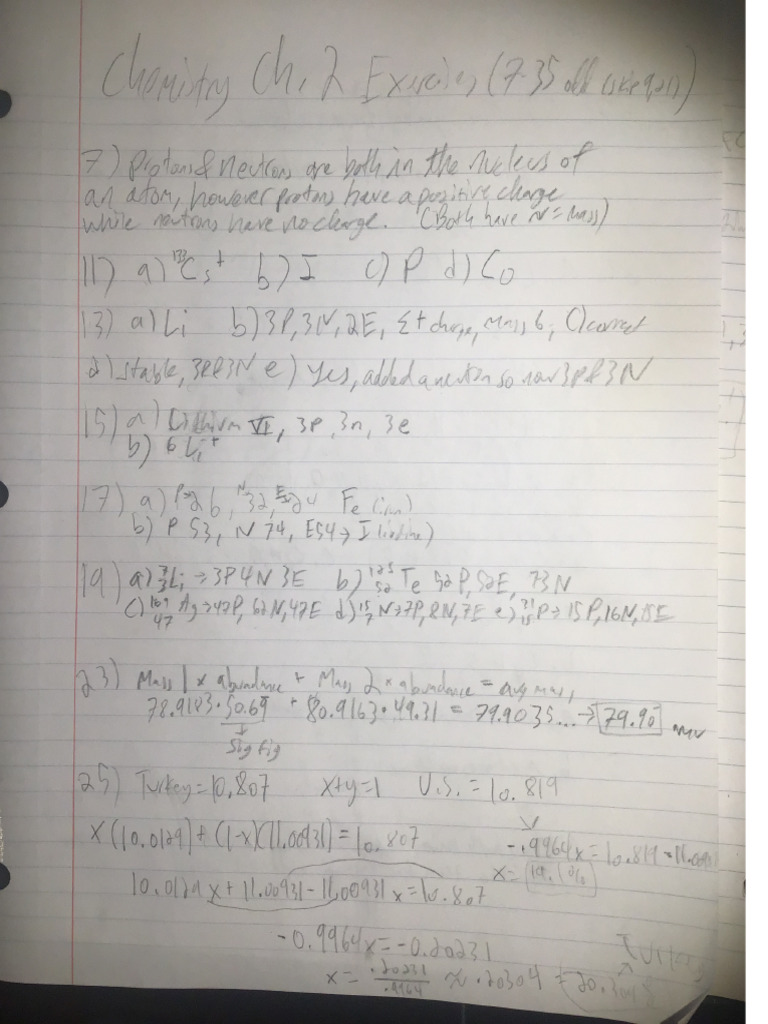 Chemistry Ch. 2 Exercises (7-35 odd (skip 9,21))
7) Protons & neutrons are both in the nucleus of
an atom, however protons have a positive charge
while neutrons have no charge. (Both have ≈ mass)
11) a) ¹³³Cs⁺ b) I c) P d) Co
13) a) Li b) 3P, 3N, 2E, + charge, Mass 6, C) correct
d) stable, 3P&3N e) Yes, added a neutron so now 3P&3N
15) a) Lithium VI, 3P, 3n, 3e
b) 6 Li⁺
17) a) P=26, N=32, E=24 Fe (iron)
b) P 53, N 74, E54 → I (iodine)
19) a) ⁷₃Li → 3P 4N 3E b) ¹²⁵₅₂Te 52P, 52E, 73N
C) ¹⁰⁹₄₇Ag → 47P, 62N, 47E d) ¹⁵₇N → 7P, 8N, 7E e) ³¹₁₅P → 15P, 16N, 15E
23) Mass 1 × abundance + Mass 2 × abundance = avg mass
78.9183 · 50.69 + 80.9163 · 49.31 = 79.9035... → 79.90 amu
↓
Sig fig
25) Turkey = 10.807 x+y=1 U.S. = 10.819
x(10.0129) + (1-x)(11.00931) = 10.807
-.9964x = 10.819 - 11.00931
10.0129x + 11.00931 - 11.00931x = 10.807
x = 19.1%
-0.9964x = -0.20231
Turkey
x = .20231/.9964 ≈ .20304 = 20.304%